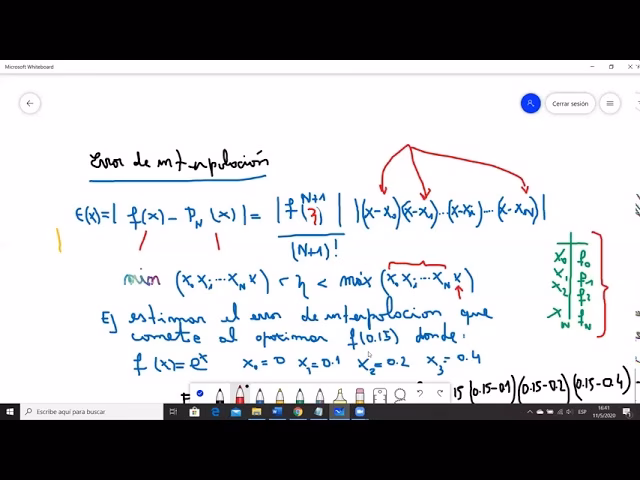 Microsoft Whiteboard
Cerrar sesión
Error de interpolación
E(x)=| f(x) - P_N(x)| = |f^{N+1}(η)| / (N+1)! |(x-x₀)(x-x₁)...(x-xᵢ)...(x-x_N)|
min (x₀ xᵢ ... x_N x) < η < máx (x₀ xᵢ ... x_N x)
x₀ f₀
x₁ f₁
x₂ f₂
x_N f_N
Ej estimar el error de interpolacion que
comete al aproximar f(0.15) donde:
f(x)=eˣ x₀=0 x₁=0.1 x₂=0.2 x₃=0.4
15(0.15-0.1)(0.15-0.2)(0.15-0.4)
Escribe aquí para buscar
ESP
16:41
11/5/2020